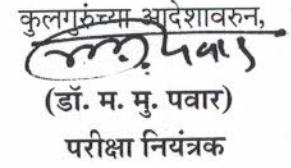 कुलगुरुंच्या आदेशावरुन,
पवार
(डॉ. म. मु. पवार)
परीक्षा नियंत्रक